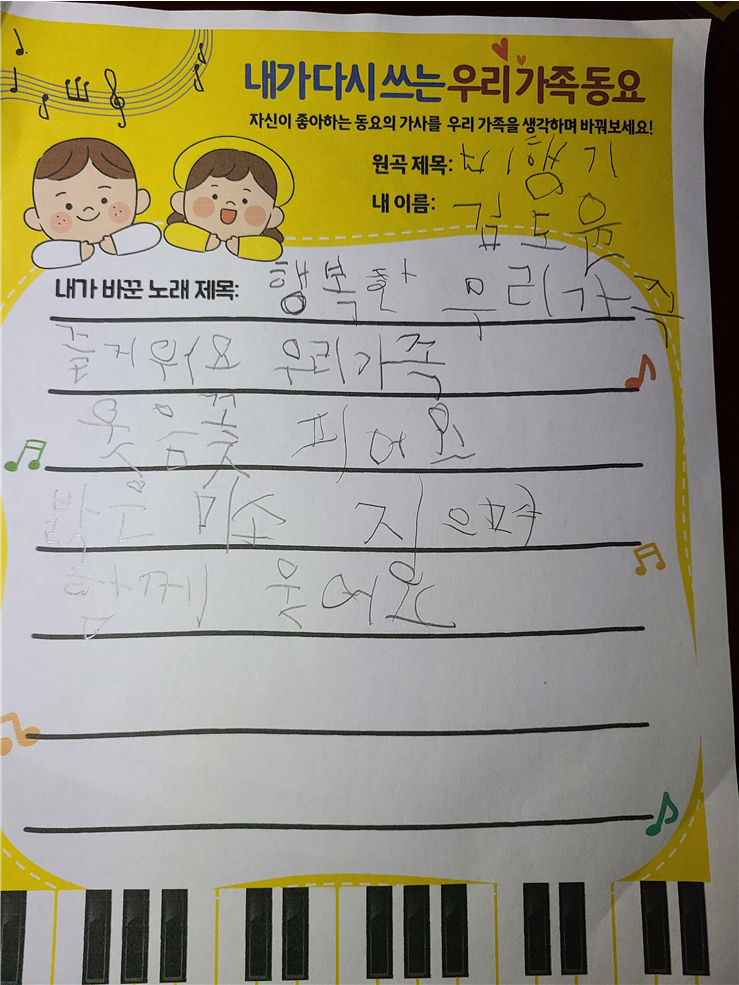 내가 다시 쓰는 우리 가족 동요
자신이 좋아하는 동요의 가사를 우리 가족을 생각하며 바꿔보세요!
원곡 제목: 비행기
내 이름: 김도윤
내가 바꾼 노래 제목: 행복한 우리가족
즐거워요 우리가족
웃음꽃 피어요
밝고 미소 지으며
함께 웃어요